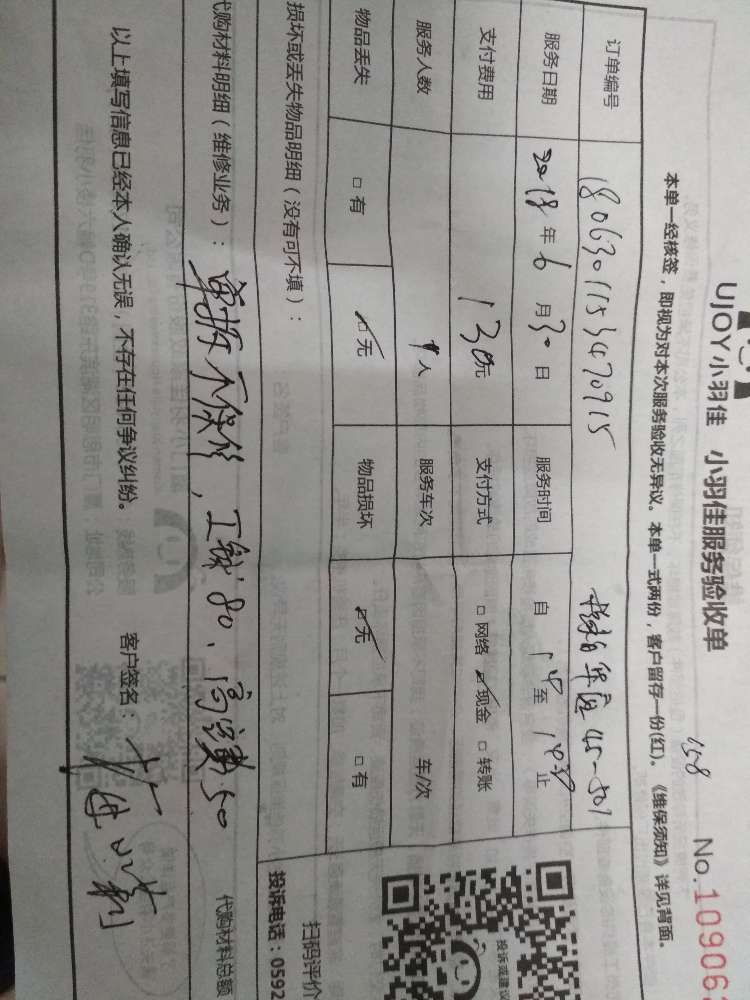 UJOY小羽佳 小羽佳服务验收单
158
No.109063
本单一经核签，即视为对本次服务验收无异议。本单一式两份，客户留存一份(红)。《维保须知》详见背面。
订单编号 1806301153470915 45-501
服务日期 2018年6月30日 服务时间 自14至1430止
支付费用 130元 支付方式 □网络 ☑现金 □转账
服务人数 1人 服务车次 车/次
物品丢失 □有 ☑无 物品损坏 ☑无 □有
损坏或丢失物品明细（没有可不填）：
代购材料明细（维修业务）： 不保修，工钱80、50
代购材料总额
以上填写信息已经本人确认无误，不存在任何争议纠纷。 客户签名：
投诉或建议
扫码评价
投诉电话：0592